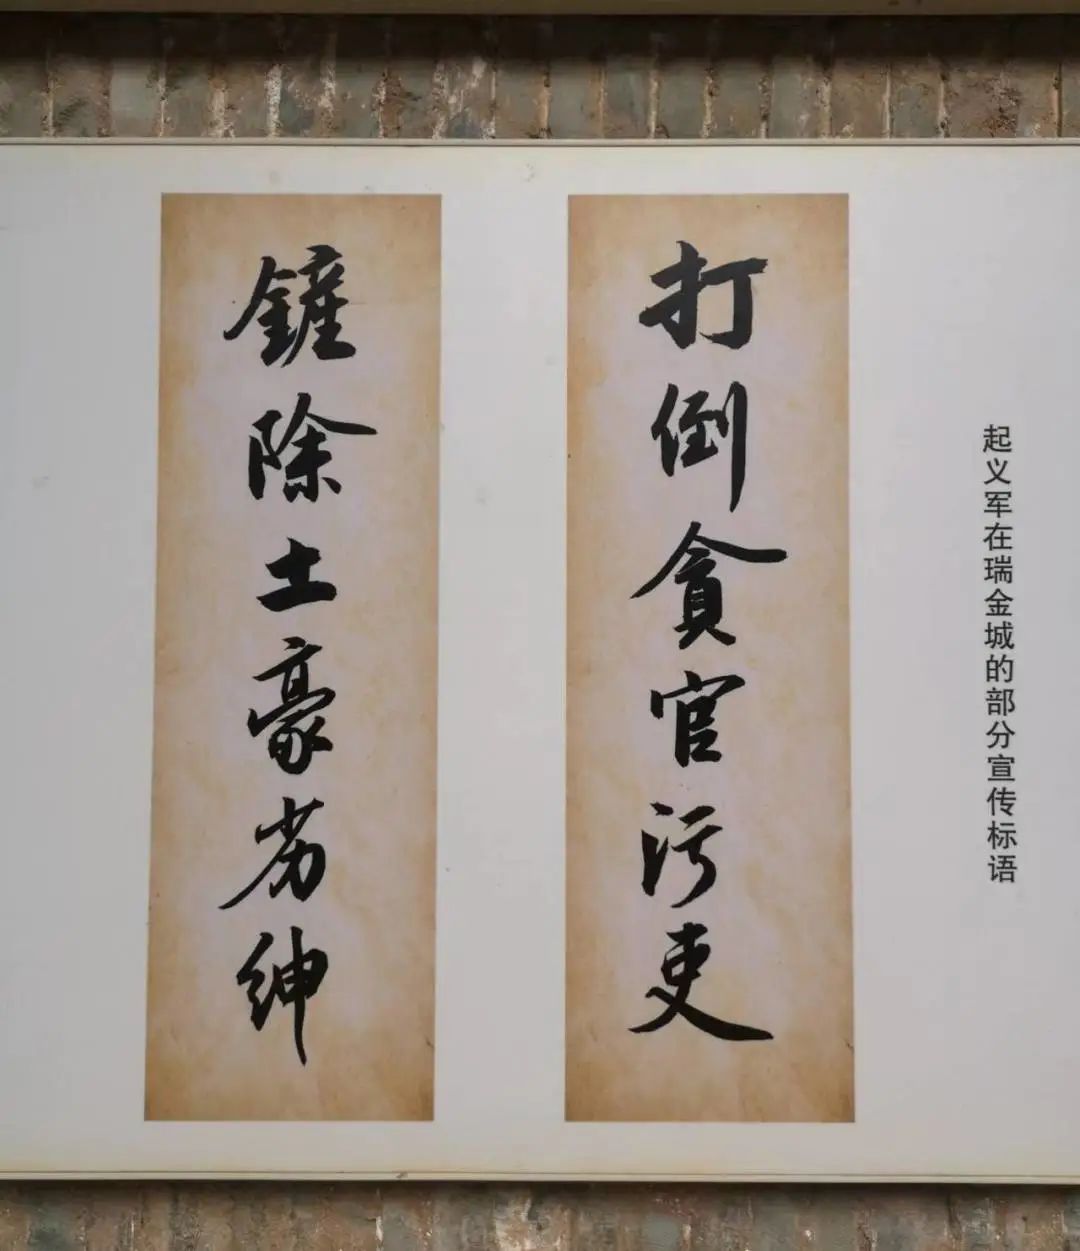 起义军在瑞金城的部分宣传标语
打倒貪官污吏
鏟除土豪劣紳